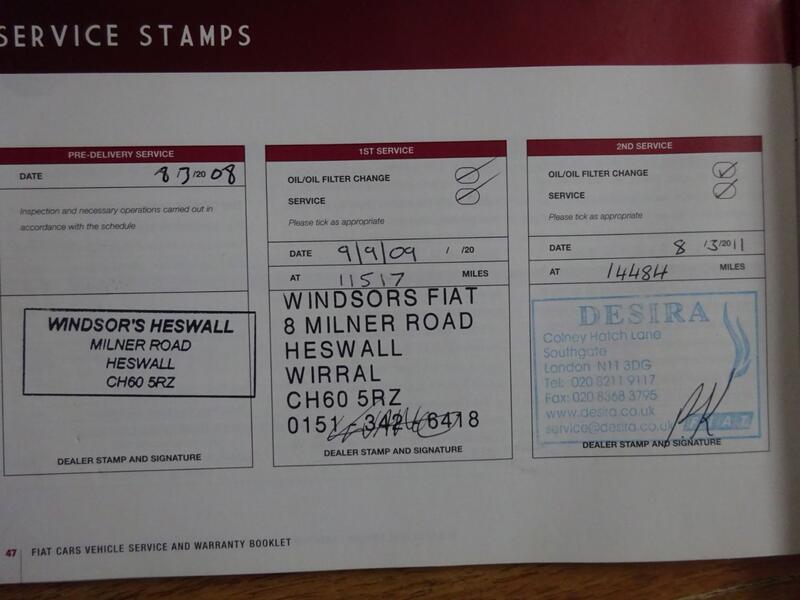 SERVICE STAMPS
PRE-DELIVERY SERVICE
DATE 8/3/20 08
Inspection and necessary operations carried out in
accordance with the schedule
WINDSOR'S HESWALL
MILNER ROAD
HESWALL
CH60 5RZ
DEALER STAMP AND SIGNATURE
1ST SERVICE
OIL/OIL FILTER CHANGE
SERVICE
Please tick as appropriate
DATE 9/9/09 / /20
AT 11517 MILES
WINDSORS FIAT
8 MILNER ROAD
HESWALL
WIRRAL
CH60 5RZ
0151 - 342 - 6418
DEALER STAMP AND SIGNATURE
2ND SERVICE
OIL/OIL FILTER CHANGE
SERVICE
Please tick as appropriate
DATE 8 /3/2011
AT 14484 MILES
DESIRA
Colney Hatch Lane
Southgate
London N11 3DG
Tel: 020 8211 9117
Fax: 020 8368 3795
www.desira.co.uk
service@desira.co.uk FIAT
DEALER STAMP AND SIGNATURE
47 FIAT CARS VEHICLE SERVICE AND WARRANTY BOOKLET